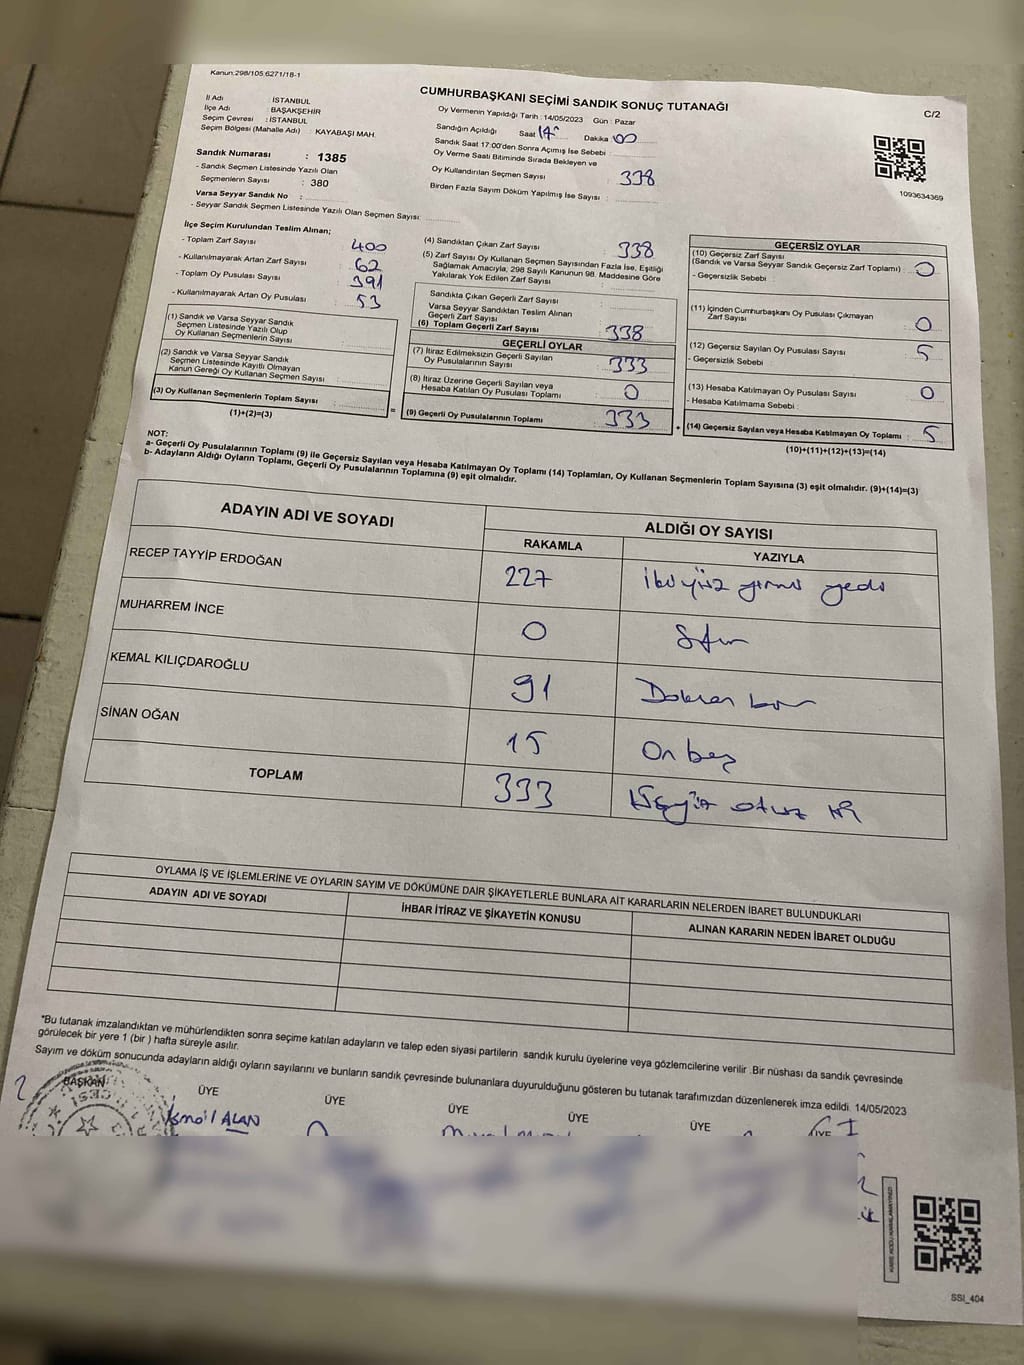 Kanun:298/105.6271/18-1
CUMHURBAŞKANI SEÇİMİ SANDIK SONUÇ TUTANAĞI
C/2
İl Adı : İSTANBUL
İlçe Adı : BAŞAKŞEHİR
Seçim Çevresi : İSTANBUL
Seçim Bölgesi (Mahalle Adı) : KAYABAŞI MAH.
Oy Vermenin Yapıldığı Tarih : 14/05/2023 Gün : Pazar
Sandığın Açıldığı Saat Dakika 00
Sandık Saat 17:00'den Sonra Açımış İse Sebebi :
Oy Verme Saati Bitiminde Sırada Bekleyen ve
Oy Kullandırılan Seçmen Sayısı : 338
Birden Fazla Sayım Döküm Yapılmış İse Sayısı :
1093634369
Sandık Numarası : 1385
- Sandık Seçmen Listesinde Yazılı Olan
Seçmenlerin Sayısı : 380
Varsa Seyyar Sandık No :
- Seyyar Sandık Seçmen Listesinde Yazılı Olan Seçmen Sayısı:
İlçe Seçim Kurulundan Teslim Alınan;
- Toplam Zarf Sayısı : 400
- Kullanılmayarak Artan Zarf Sayısı : 62
- Toplam Oy Pusulası Sayısı : 391
- Kullanılmayarak Artan Oy Pusulası : 53
(1) Sandık ve Varsa Seyyar Sandık
Seçmen Listesinde Yazılı Olup
Oy Kullanan Seçmenlerin Sayısı :
(2) Sandık ve Varsa Seyyar Sandık
Seçmen Listesinde Kayıtlı Olmayan
Kanun Gereği Oy Kullanan Seçmen Sayısı :
(3) Oy Kullanan Seçmenlerin Toplam Sayısı :
(1)+(2)=(3)
=
(4) Sandıktan Çıkan Zarf Sayısı : 338
(5) Zarf Sayısı Oy Kullanan Seçmen Sayısından Fazla İse, Eşitliği
Sağlamak Amacıyla, 298 Sayılı Kanunun 98. Maddesine Göre
Yakılarak Yok Edilen Zarf Sayısı :
Sandıkta Çıkan Geçerli Zarf Sayısı :
Varsa Seyyar Sandıktan Teslim Alınan
Geçerli Zarf Sayısı :
(6) Toplam Geçerli Zarf Sayısı : 338
GEÇERLİ OYLAR
(7) İtiraz Edilmeksizin Geçerli Sayılan
Oy Pusulalarının Sayısı : 333
(8) İtiraz Üzerine Geçerli Sayılan veya
Hesaba Katılan Oy Pusulası Toplamı : 0
(9) Geçerli Oy Pusulalarının Toplamı : 333
+
GEÇERSİZ OYLAR
(10) Geçersiz Zarf Sayısı
(Sandık ve Varsa Seyyar Sandık Geçersiz Zarf Toplamı) : 0
- Geçersizlik Sebebi :
(11) İçinden Cumhurbaşkanı Oy Pusulası Çıkmayan
Zarf Sayısı : 0
(12) Geçersiz Sayılan Oy Pusulası Sayısı : 5
- Geçersizlik Sebebi :
(13) Hesaba Katılmayan Oy Pusulası Sayısı : 0
- Hesaba Katılmama Sebebi :
(14) Geçersiz Sayılan veya Hesaba Katılmayan Oy Toplamı : 5
(10)+(11)+(12)+(13)=(14)
NOT:
a- Geçerli Oy Pusulalarının Toplamı (9) ile Geçersiz Sayılan veya Hesaba Katılmayan Oy Toplamı (14) Toplamları, Oy Kullanan Seçmenlerin Toplam Sayısına (3) eşit olmalıdır. (9)+(14)=(3)
b- Adayların Aldığı Oyların Toplamı, Geçerli Oy Pusulalarının Toplamına (9) eşit olmalıdır.
ADAYIN ADI VE SOYADI
ALDIĞI OY SAYISI
RAKAMLA YAZIYLA
RECEP TAYYİP ERDOĞAN 227 iki yüz yirmi yedi
MUHARREM İNCE 0 Sıfır
KEMAL KILIÇDAROĞLU 91 Doksan bir
SİNAN OĞAN 15 On beş
TOPLAM 333 Üçyüz otuz üç
OYLAMA İŞ VE İŞLEMLERİNE VE OYLARIN SAYIM VE DÖKÜMÜNE DAİR ŞİKAYETLERLE BUNLARA AİT KARARLARIN NELERDEN İBARET BULUNDUKLARI
ADAYIN ADI VE SOYADI İHBAR İTİRAZ VE ŞİKAYETİN KONUSU ALINAN KARARIN NEDEN İBARET OLDUĞU
*Bu tutanak imzalandıktan ve mühürlendikten sonra seçime katılan adayların ve talep eden siyasi partilerin sandık kurulu üyelerine veya gözlemcilerine verilir .Bir nüshası da sandık çevresinde
görülecek bir yere 1 (bir ) hafta süreyle asılır.
Sayım ve döküm sonucunda adayların aldığı oyların sayılarını ve bunların sandık çevresinde bulunanlara duyurulduğunu gösteren bu tutanak tarafımızdan düzenlenerek imza edildi. 14/05/2023
BAŞKAN ÜYE ÜYE ÜYE ÜYE ÜYE ÜYE
İsmail ALAN
KARE KODU KARALAMAYINIZ!
SSI_404